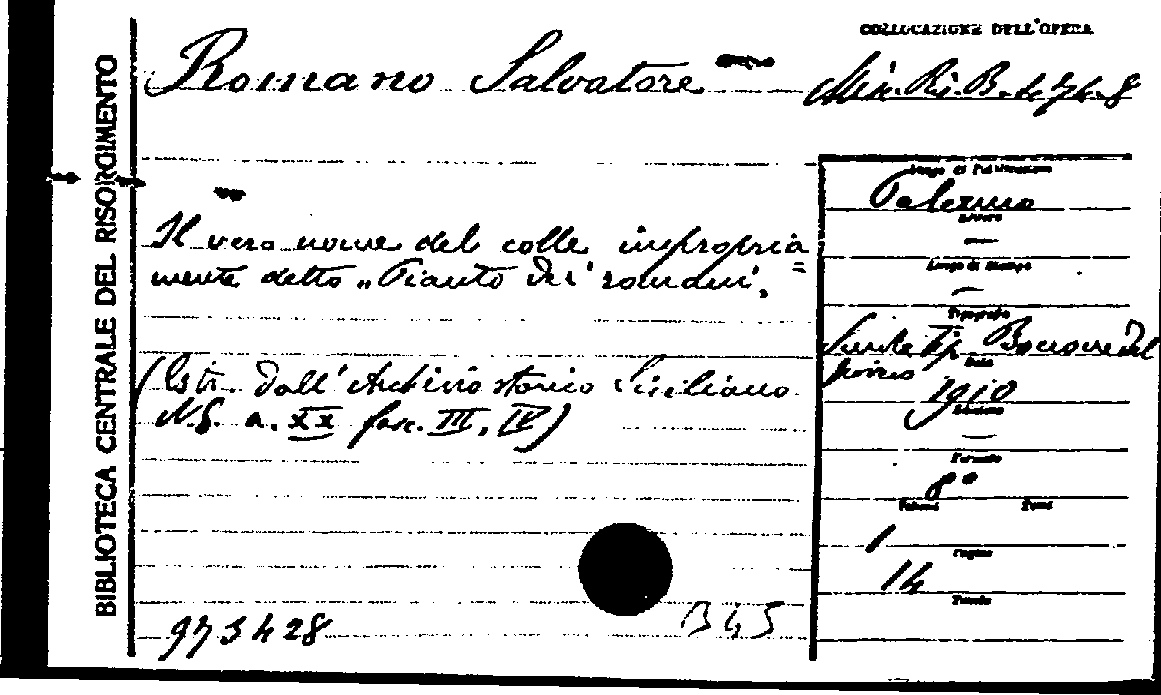 BIBLIOTECA CENTRALE DEL RISORGIMENTO
COLLOCAZIONE DELL'OPERA
Romano Salvatore
Min. Ri. B. 474. 8
Il vero nome del colle impropria=
mente detto „Pianto dei romani"
(Estr. dall'Archivio storico Siciliano
N.S. a. XX fasc. III, IV)
973428
B45
Luogo di Pubblicazione
Palermo
Editore
Luogo di Stampa
Tipografia
Tip. Boccone del
povero
Data
1910
Edizione
Formato
8°
Volumi
Tomi
1
Pagine
14
Tavole